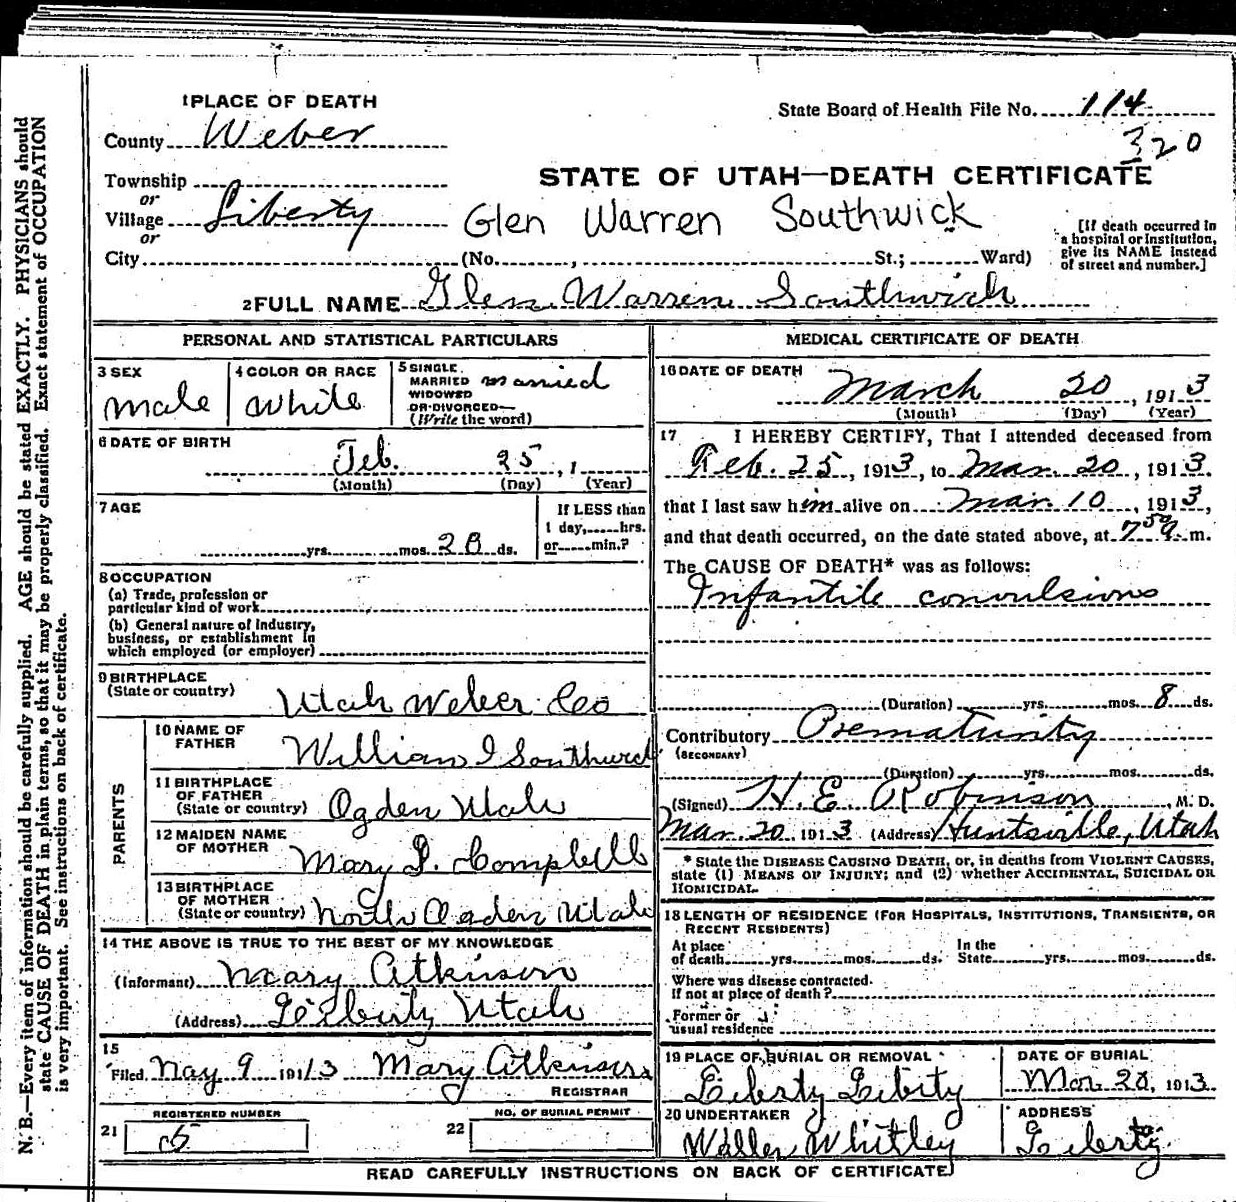 1 PLACE OF DEATH
State Board of Health File No. 114
320
County Weber
STATE OF UTAH—DEATH CERTIFICATE
Township
or
Village Liberty
Glen Warren Southwick
or
City (No. , St.; Ward)
[If death occurred in
a hospital or institution,
give its NAME instead
of street and number.]
2 FULL NAME Glen Warren Southwick
PERSONAL AND STATISTICAL PARTICULARS
3 SEX
male
4 COLOR OR RACE
White
5 SINGLE,
MARRIED married
WIDOWED
OR DIVORCED
(Write the word)
6 DATE OF BIRTH
Feb. 25, 1
(Month) (Day) (Year)
7 AGE
yrs. mos. 28 ds.
If LESS than
1 day, hrs.
or min.?
8 OCCUPATION
(a) Trade, profession or
particular kind of work
(b) General nature of Industry,
business, or establishment in
which employed (or employer)
9 BIRTHPLACE
(State or country) Utah Weber Co
PARENTS
10 NAME OF
FATHER William I Southwick
11 BIRTHPLACE
OF FATHER
(State or country) Ogden Utah
12 MAIDEN NAME
OF MOTHER Mary I. Campbell
13 BIRTHPLACE
OF MOTHER
(State or country) North Ogden Utah
14 THE ABOVE IS TRUE TO THE BEST OF MY KNOWLEDGE
(Informant) Mary Atkinson
(Address) Leiberty Utah
15
Filed May 9 1913 Mary Atkinson
REGISTRAR
REGISTERED NUMBER
21 5
NO. OF BURIAL PERMIT
22
MEDICAL CERTIFICATE OF DEATH
16 DATE OF DEATH
March 20, 1913
(Month) (Day) (Year)
17 I HEREBY CERTIFY, That I attended deceased from
Feb. 25, 1913, to Mar. 20, 1913.
that I last saw him alive on Mar. 10, 1913,
and that death occurred, on the date stated above, at 7 50 a. m.
The CAUSE OF DEATH* was as follows:
Infantile convulsions
(Duration) yrs. mos. 8 ds.
Contributory Prematurity
(SECONDARY)
(Duration) yrs. mos. ds.
(Signed) H. E. Robinson, M. D.
Mar. 20 1913 (Address) Huntsville, Utah
* State the DISEASE CAUSING DEATH, or, in deaths from VIOLENT CAUSES,
state (1) MEANS OF INJURY; and (2) whether ACCIDENTAL, SUICIDAL OR
HOMICIDAL.
18 LENGTH OF RESIDENCE (FOR HOSPITALS, INSTITUTIONS, TRANSIENTS, OR
RECENT RESIDENTS)
At place
of death yrs. mos. ds.
In the
State yrs. mos. ds.
Where was disease contracted.
If not at place of death?
Former or
usual residence
19 PLACE OF BURIAL OR REMOVAL
Liberty Liberty
DATE OF BURIAL
Mar. 20, 1913
20 UNDERTAKER
Whitley
ADDRESS
Liberty
READ CAREFULLY INSTRUCTIONS ON BACK OF CERTIFICATE
N. B.—Every item of information should be carefully supplied. AGE should be stated EXACTLY. PHYSICIANS should
state CAUSE OF DEATH in plain terms, so that it may be properly classified. Exact statement of OCCUPATION
is very important. See instructions on back of certificate.